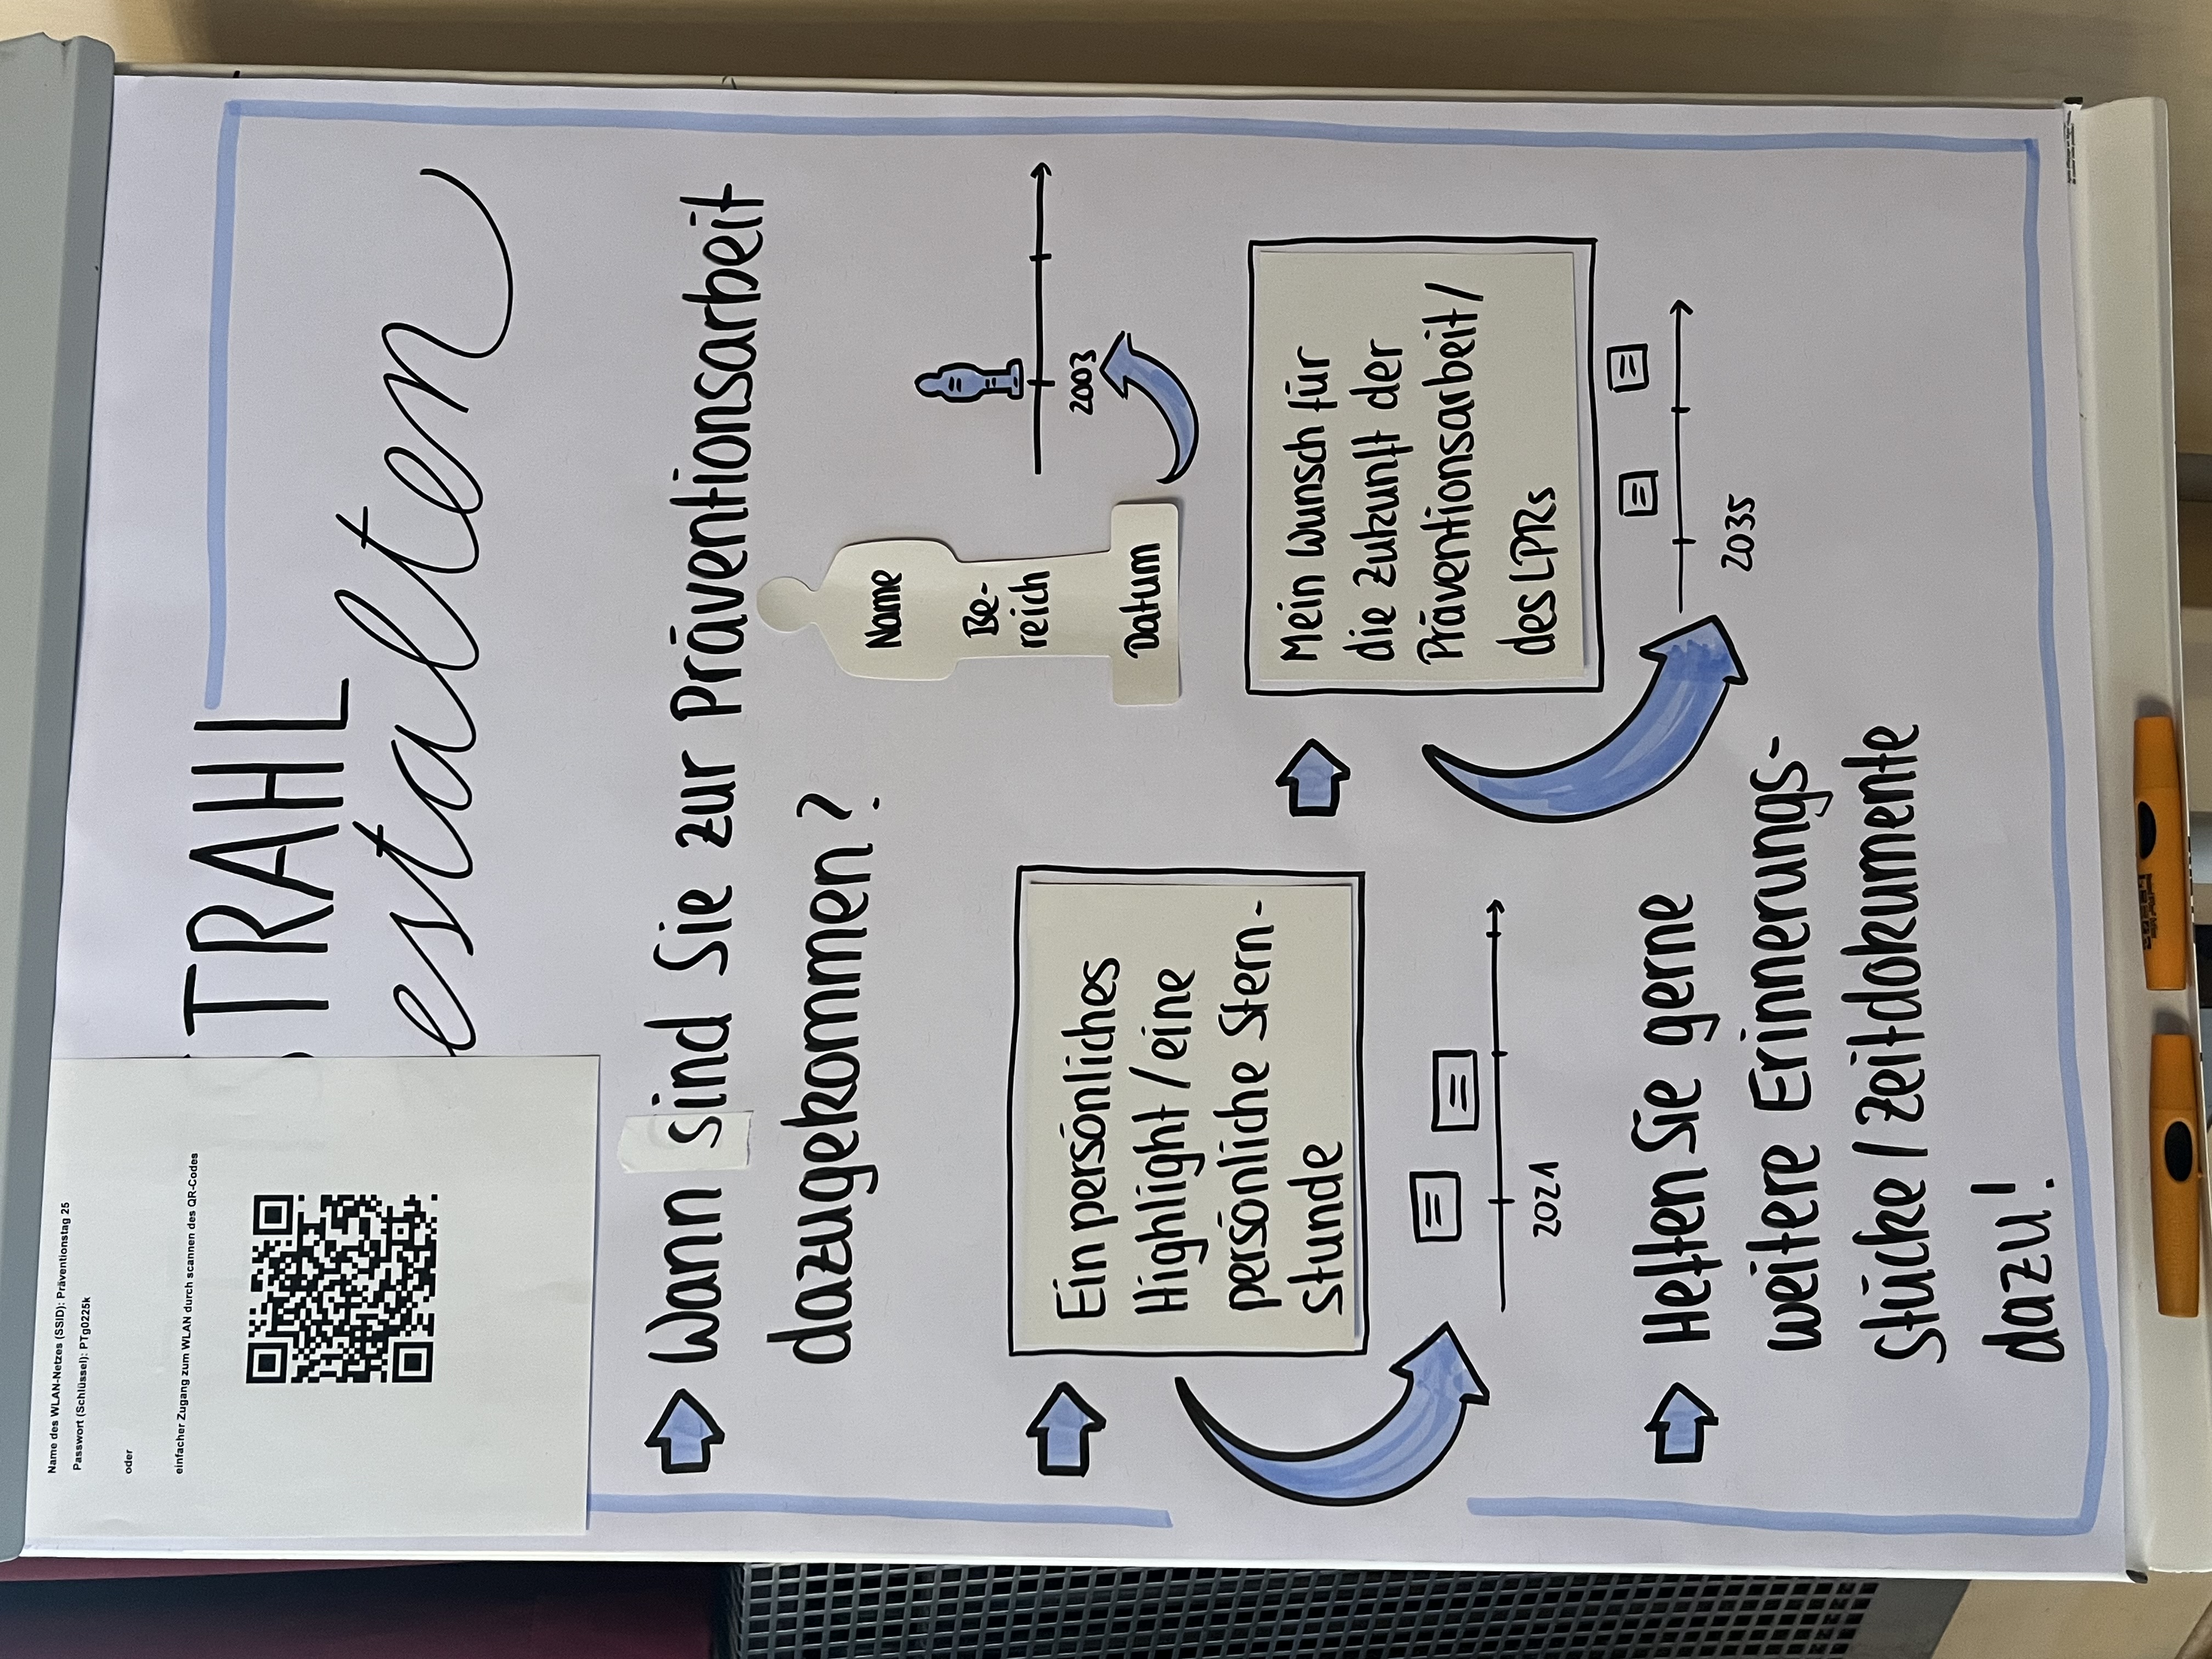 Name des WLAN-Netzes (SSID): Präventionstag 25
Passwort (Schlüssel): PTg0225k
oder
einfacher Zugang zum WLAN durch scannen des QR-Codes
STRAHL
estalten
Wann sind Sie zur Präventionsarbeit
dazugekommen?
Name
Be-
reich
Datum
2003
Ein persönliches
Highlight / eine
persönliche Stern-
stunde
2021
Mein Wunsch für
die Zukunft der
Präventionsarbeit /
des LPRs
2035
Heften Sie gerne
weitere Erinnerungs-
stücke / Zeitdokumente
dazu!